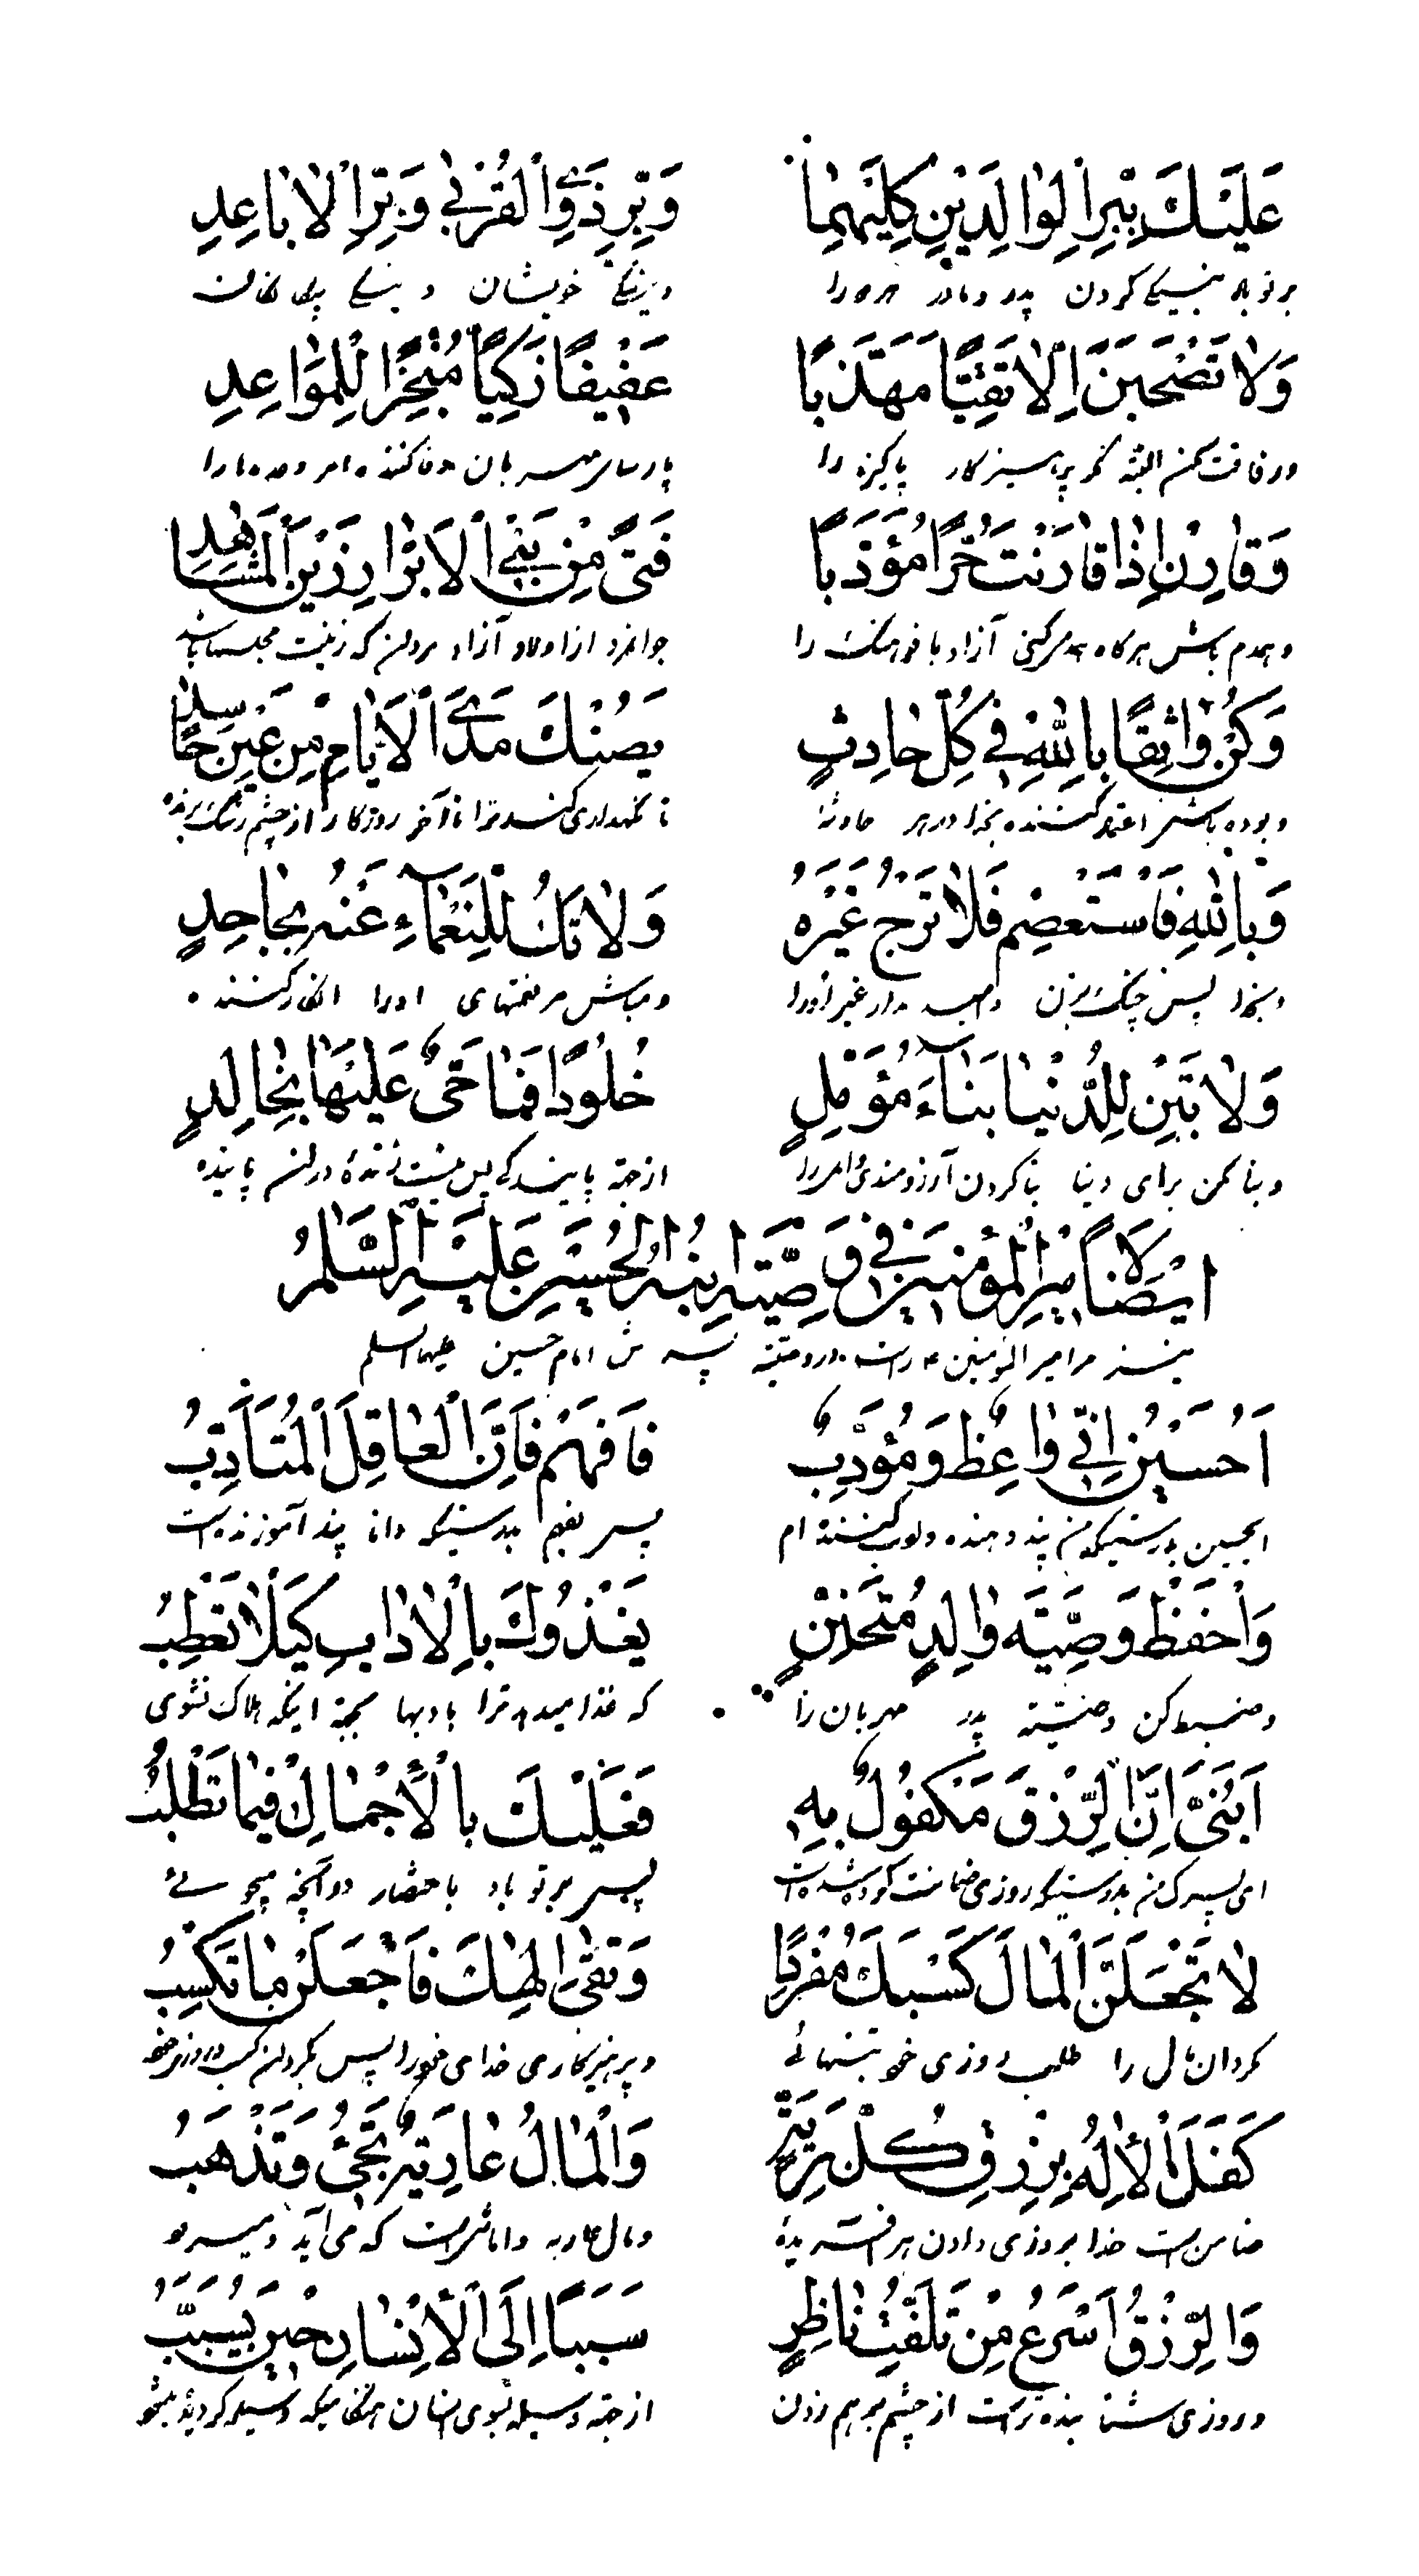 عَلَيْكَ بِبِرِّ الْوَالِدَيْنِ كِلَيْهِمَا وَبِرِّ ذَوِي الْقُرْبٰى وَبِرِّ الْاَبَاعِدِ
بر تو باد نیکی کردن پدر و مادر هر دو را و نیکی خویشان و نیکی
وَلَا تَصْحَبَنَّ اِلَّا تَقِيًّا مُهَذَّبًا عَفِيفًا زَكِيًّا مُنْجِزًا لِلْمَوَاعِدِ
و رفاقت مکن البته مگر پرهیزکار پاکیزه را پارسای وفا کننده مر وعده‌ها را
وَقَارِنْ اِذَا قَارَنْتَ حُرًّا مُؤَدَّبًا فَتًى مِنْ بَنِي الْاَبْرَارِ زَيْنَ الْمَشَاهِدِ
و همدم باش هر گاه همدم کنی آزاد با فرهنگ را جوانمرد از اولاد آزاد مردان که زینت مجلسها باشد
وَكُنْ وَاثِقًا بِاللّٰهِ فِي كُلِّ حَادِثٍ يَصُنْكَ مَدَى الْاَيَّامِ مِنْ عَيْنِ حَاسِدٍ
و بوده باش اعتماد کننده بخدا در هر حادثه تا نگهداری کند ترا تا آخر روزکار از چشم رشک برنده
وَبِاللّٰهِ فَاسْتَعْصِمْ فَلَا تَرْجُ غَيْرَهُ وَلَا تَكُ لِلنَّعْمَاءِ عَنْهُ بِجَاحِدٍ
و بخدا پس چنک بزن و امید مدار غیر او را و مباش مر نعمتهای او را انکار کننده
وَلَا تَبْنِ لِلدُّنْيَا بِنَاءَ مُؤَمِّلٍ خُلُودًا فَمَا حَيٌّ عَلَيْهَا بِخَالِدٍ
و بنا مکن برای دنیا بنا کردن آرزومندی از جهة پایندکی پس نیست زندهٔ در آن پاینده
اَيْضًا لِاَمِيرِ الْمُؤْمِنِينَ فِي وَصِيَّتِهِ ابْنَهُ الْحُسَيْنَ عَلَيْهِ السَّلٰمُ
نیز مر امیر المؤمنین در وصیة امام حسین علیهما السلم
اَحُسَيْنُ اِنِّي وَاعِظٌ وَمُؤَدِّبٌ فَافْهَمْ فَاِنَّ الْعَاقِلَ الْمُتَاَدِّبُ
ایحسین بدرستیکه من پند دهنده و ادب کننده ام پس بفهم بدرستیکه دانا پند آموزنده است
وَاحْفَظْ وَصِيَّةَ وَالِدٍ مُتَحَنِّنٍ يَغْذُوكَ بِالْاٰدَابِ كَيْلَا تَعْطَبُ
و ضبط کن وصیة پدر مهربان را که غذا میدهد ترا بادبها بجهة اینکه هلاک نشوی
اَبُنَيَّ اِنَّ الرِّزْقَ مَكْفُولٌ بِهِ فَعَلَيْكَ بِالْاِجْمَالِ فِيمَا تَطْلُبُ
ای پسرک من بدرستیکه روزی ضمانت کرده شده است پس بر تو باد باختصار در آنچه میجوئی
لَا تَجْعَلَنَّ الْمَالَ كَسْبَكَ مُفْرَدًا وَتُقٰى اِلٰهِكَ فَاجْعَلَنْ مَا تَكْسِبُ
مکردان مال را طلب روزی خود بتنهائی و پرهیزکاری خدای خود را پس بکردان
كَفَلَ الْاِلٰهُ بِرِزْقِ كُلِّ بَرِيَّةٍ وَالْمَالُ عَارِيَةٌ تَجِيءُ وَتَذْهَبُ
ضامن است خدا بروزی دادن هر آفریدهٔ و مال عاریه است که می آید و میرود
وَالرِّزْقُ اَسْرَعُ مِنْ تَلَفُّتِ نَاظِرٍ سَبَبًا اِلَى الْاِنْسَانِ حِينَ يُسَبَّبُ
و روزی شتابنده تر است از چشم بر هم زدن از جهة وسیله بسوی انسان هنکامیکه وسیله کردیده میشود